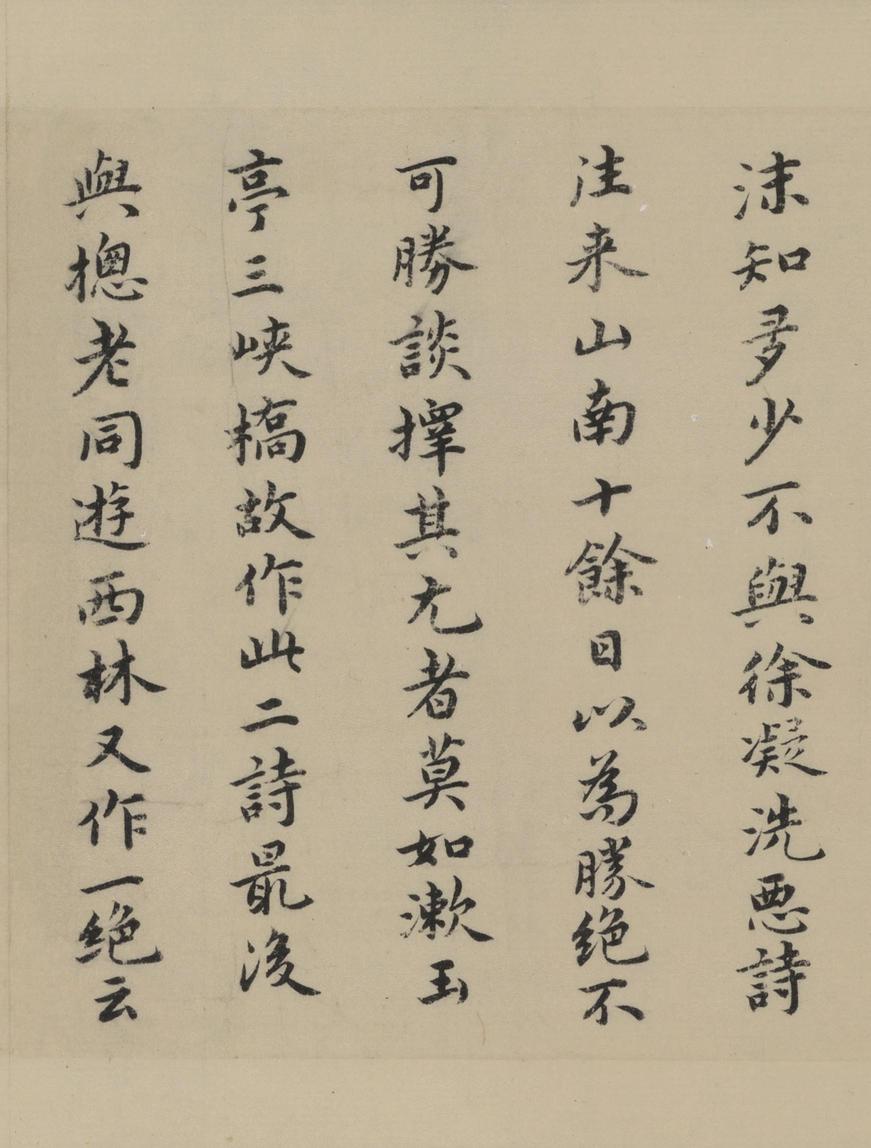 沫知多少不與徐凝洗惡詩
往来山南十餘日以為勝絶不
可勝談擇其尤者莫如漱玉
亭三峽橋故作此二詩最後
與摠老同遊西林又作一絶云